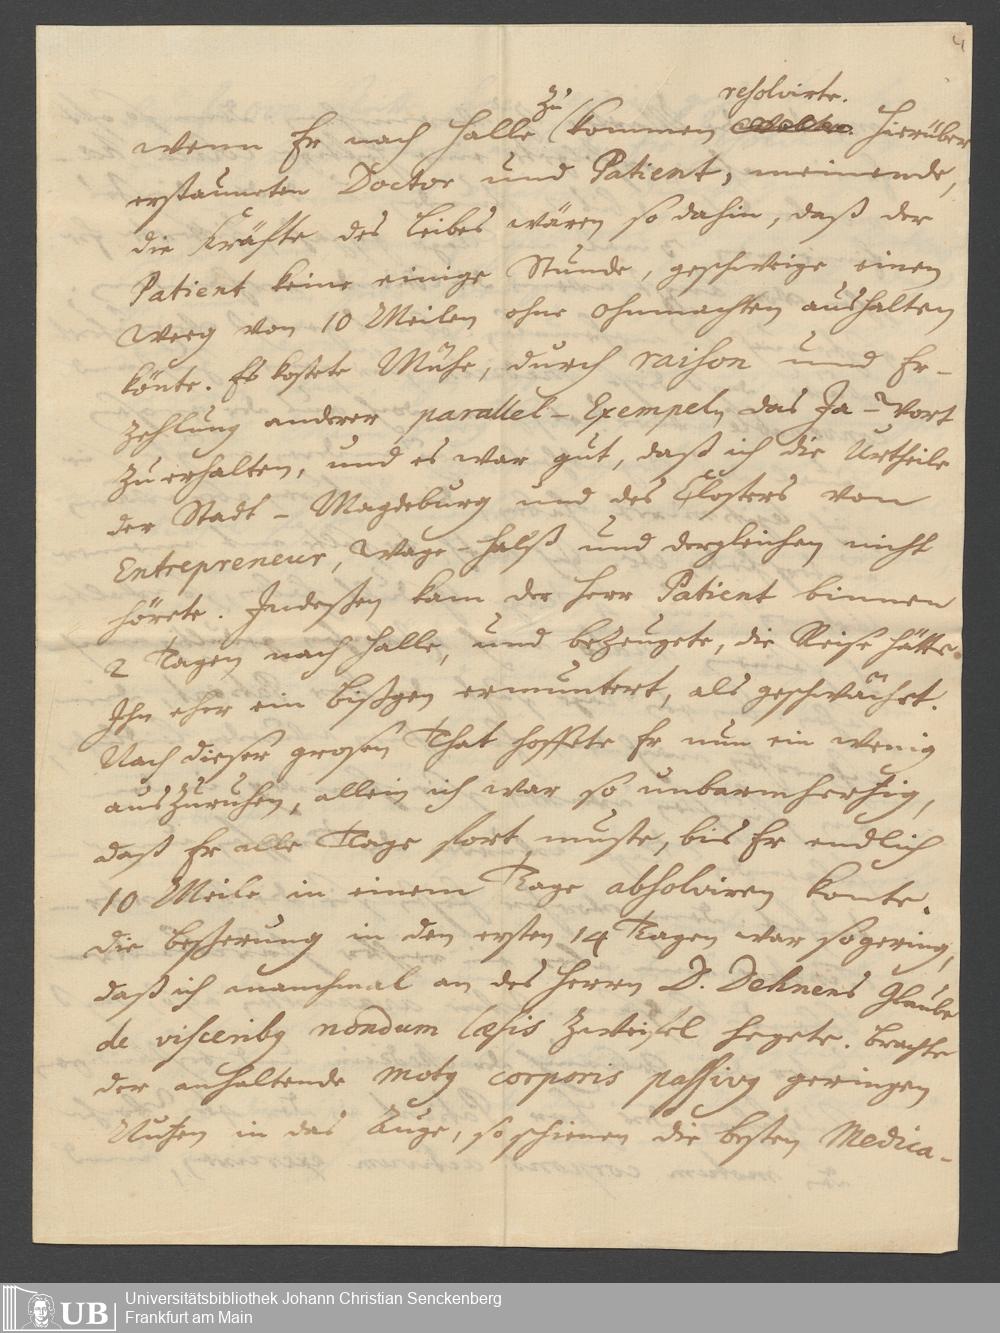 4
wenn Er nach Halle zu kommen resolvirte. Hierüber
erstauneten Doctor und Patient, meinende,
die Kräfte des Leibes wären so dahin, daß der
Patient keine einige Stunde, geschweige einen
Weeg von 10 Meilen ohne Ohnmachten aushalten
könte. Es kostete Mühe, durch raison und Er-
zehlung anderer parallel-Exempeln das Ja-Wort
zu erhalten, und es war gut, daß ich die Urtheile
der Stadt-Magdeburg und des Closters von
Entrepreneur, Wage-Halß und dergleichen nicht
hörete. Indeßen kam der Herr Patient binnen
2 Tagen nach Halle, und bezeugete, die Reise hätte
Ihn eher ein bißgen ermuntert, als geschwächet.
Nach dieser grosen That hoffete Er nun ein wenig
auszuruhen, allein ich war so unbarmhertzig,
daß Er alle Tage fort muste, bis Er endlich
10 Meile in einem Tage absolviren konte.
Die Besserung in den ersten 14 Tagen war so gering,
daß ich manchmal an des Herrn D. Dehnens Glaube
de visceribq nondum læsis Zweifel hegete. Brachte
der anhaltende motq corporis passivq geringen
Nutzen in das Auge, so schienen die besten Medica-
UB
Universitätsbibliothek Johann Christian Senckenberg
Frankfurt am Main